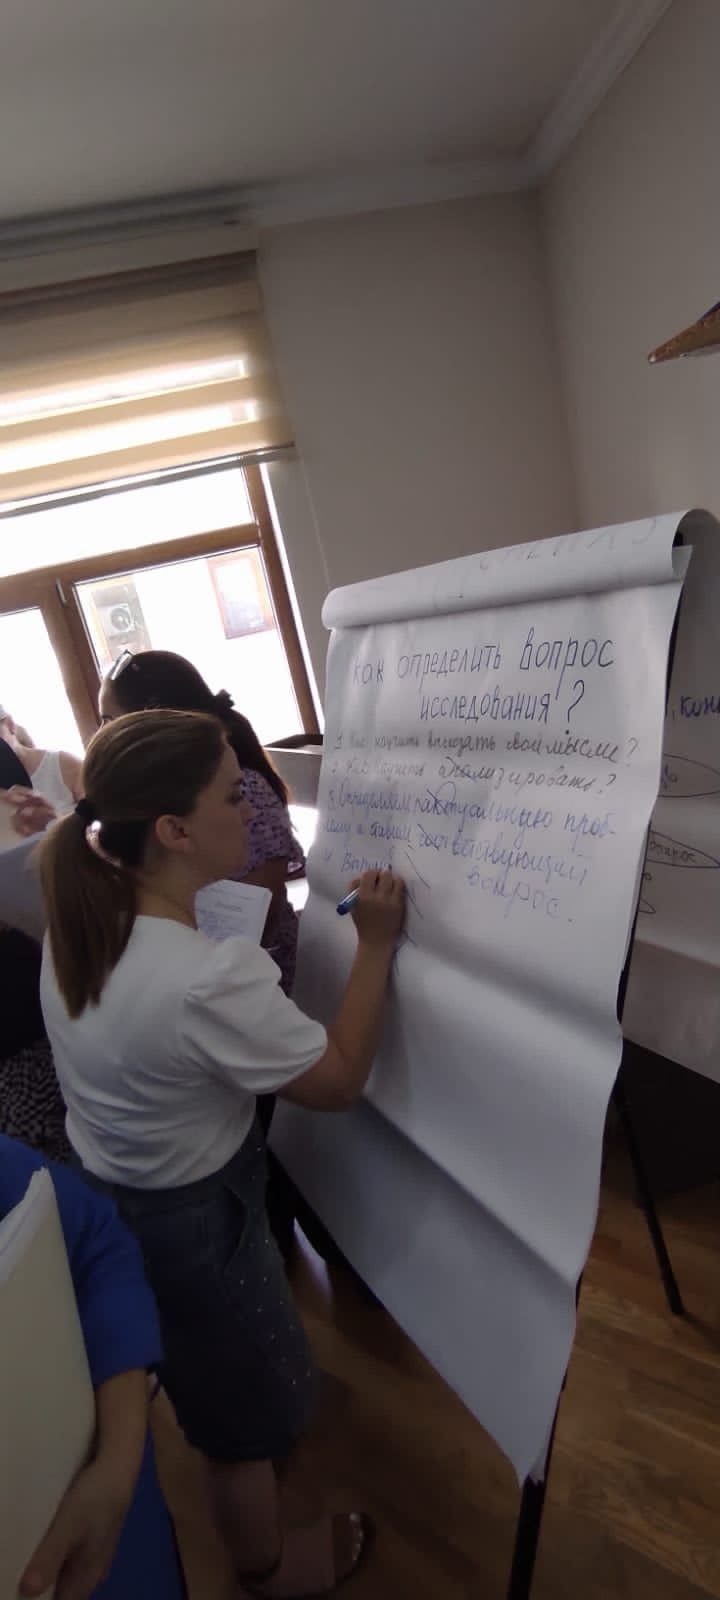 как определить вопрос
исследования?
1. Как научить высказать свои мысли?
2. Как научить анализировать?
3. Определяем актуальную проб-
лему и ставим соответствующий
вопрос.
4
вопрос